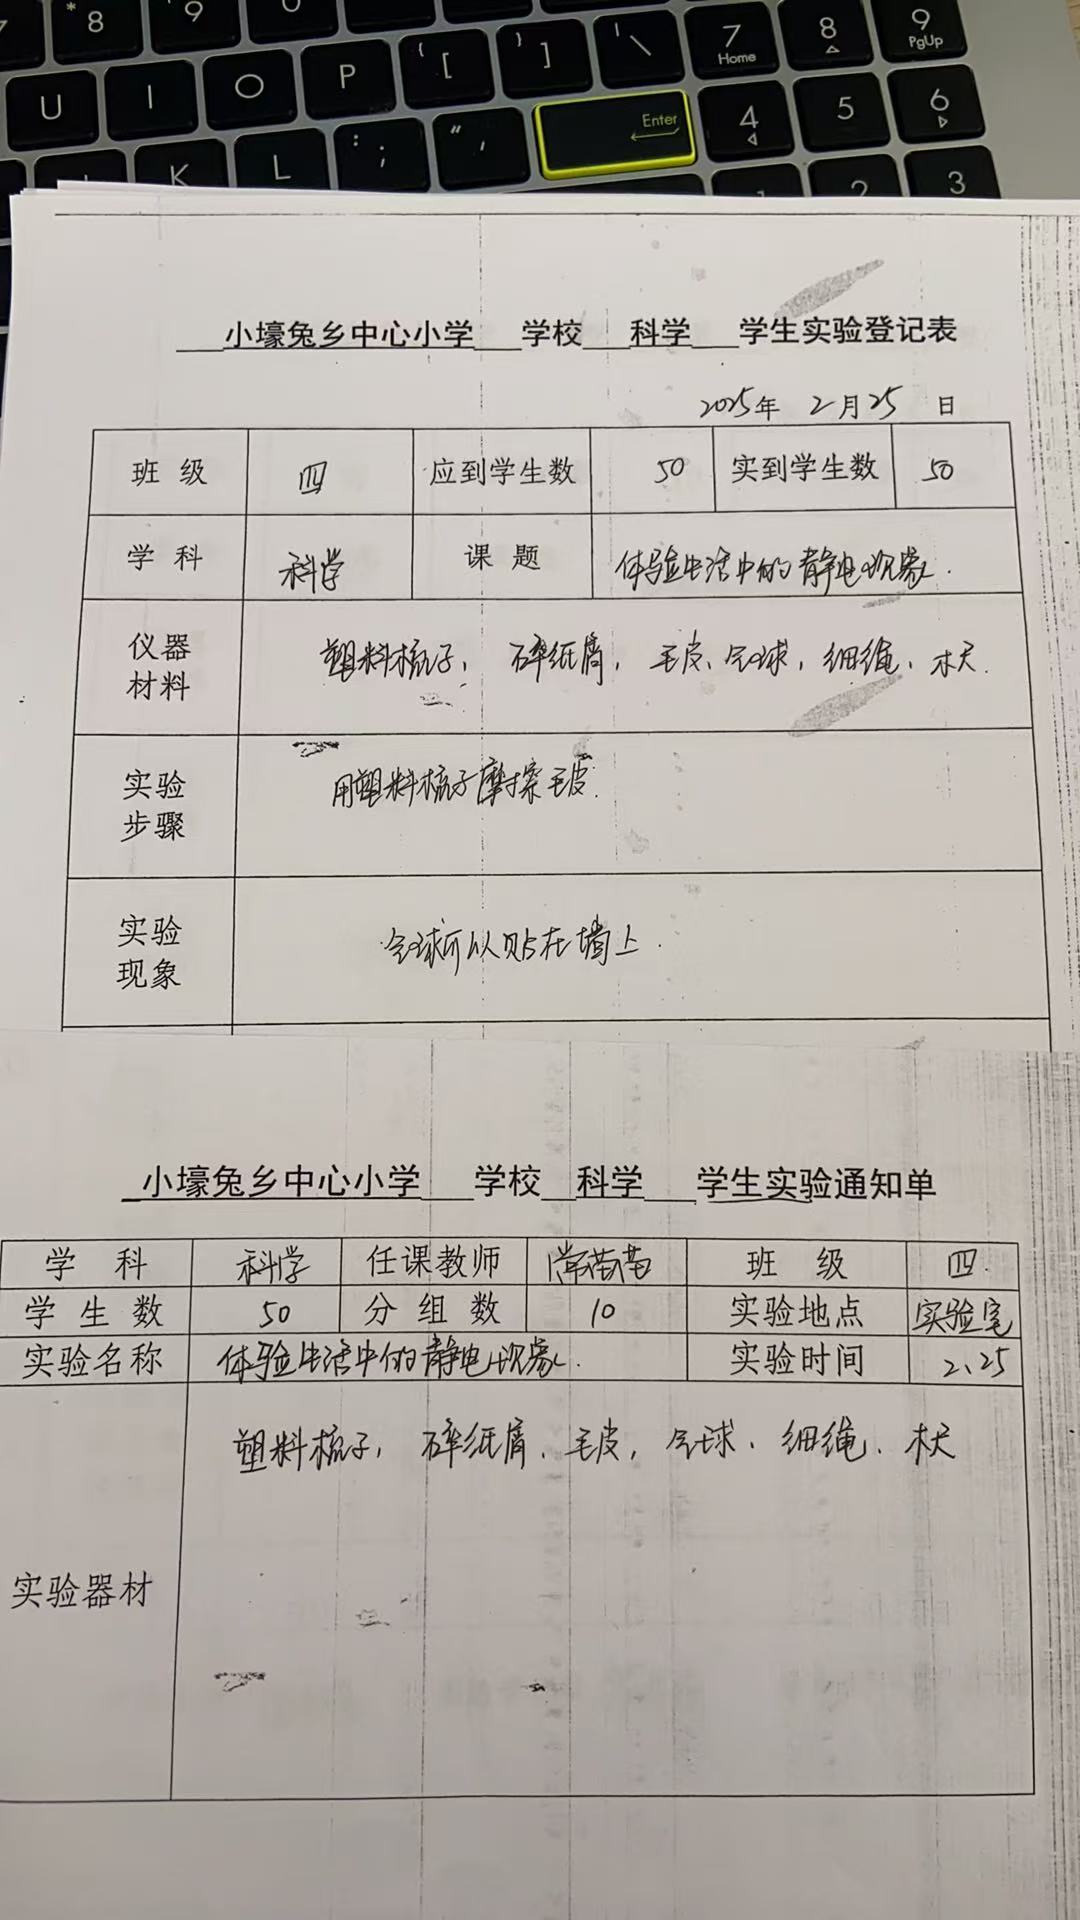 * 8 ( 9 O
U I O P { [ } ] | \ 7 Home 8 9 PgUp
K L : ; " ' Enter 4 5 6
1 2 3
小壕兔乡中心小学 学校 科学 学生实验登记表
2025年 2月25 日
班 级 四 应到学生数 50 实到学生数 50
学 科 科学 课 题 体验生活中的静电现象.
仪器
材料 塑料梳子, 碎纸屑, 毛皮、气球, 细绳、木尺.
实验
步骤 用塑料梳子摩擦毛皮.
实验
现象 气球可以贴在墙上.
小壕兔乡中心小学 学校 科学 学生实验通知单
学 科 科学 任课教师 苗苗 班 级 四.
学 生 数 50 分 组 数 10 实验地点 实验室
实验名称 体验生活中的静电现象. 实验时间 2、25
塑料梳子, 碎纸屑、毛皮, 气球、细绳、木尺
实验器材